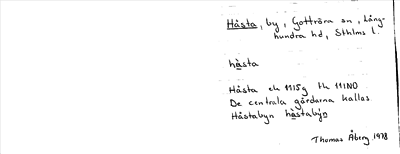 Håsta, by, Gottröra sn, Lång-
hundra hd, Sthlms l.
hàsta
Håsta ek 11I5g fk 11IN0
De centrala gårdarna kallas
Håstabyn hàstabýn
Thomas Åberg 1978